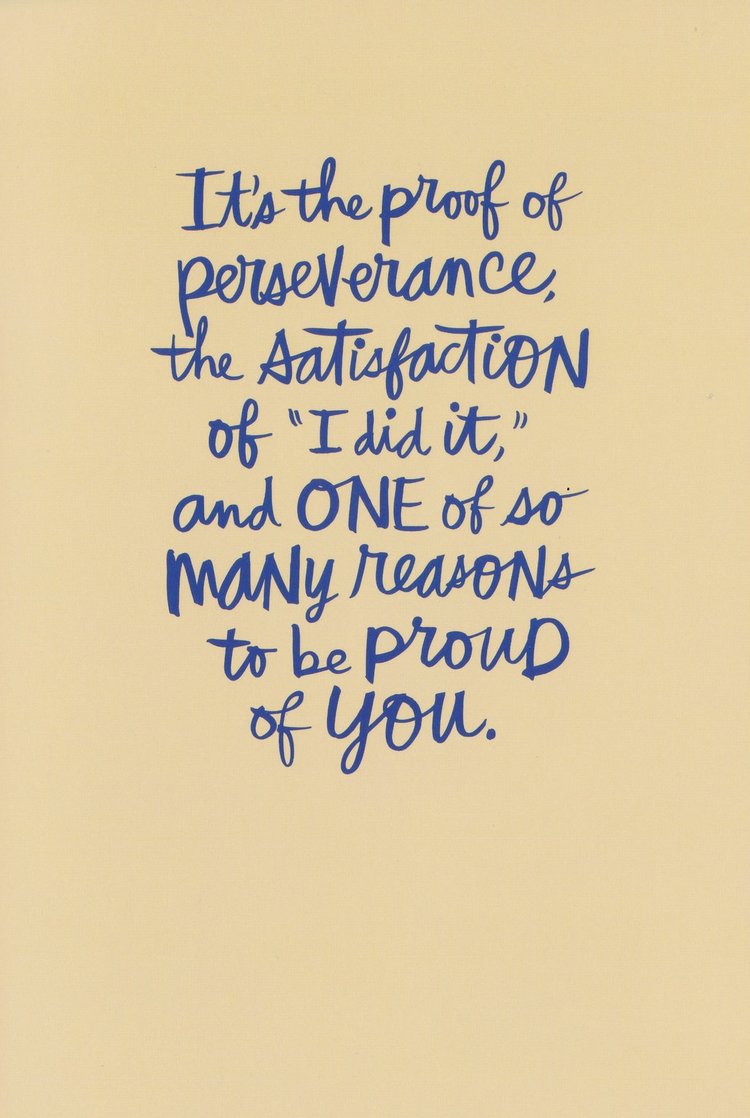 It's the proof of
perseverance,
the satisfaction
of "I did it,"
and ONE of so
many reasons
to be proud
of you.